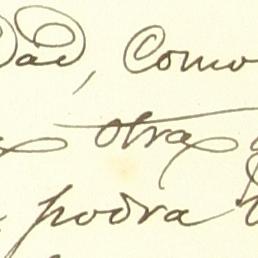 Dad, Como
otra
podra